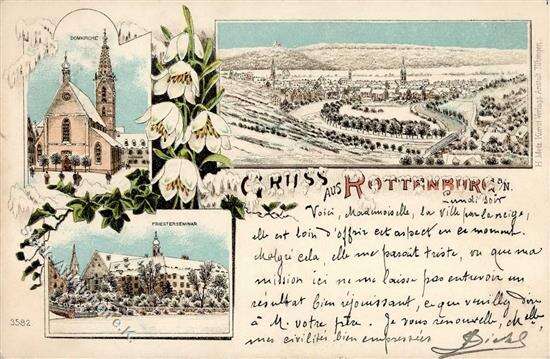 DOMKIRCHE
GRUSS AUS ROTTENBURG A/N.
H. Metz, Kunst-Verlags-Anstalt Tübingen.
Lundi soir
Voici, Mademoiselle, la ville par la neige,
elle est loin d'offrir cet aspect en ce moment.
Malgré cela, elle me paraît triste, ou que ma
mission ici ne me laisse pas entrevoir un
résultat bien réjouissant, ce que veuillez dire
à M. votre père. Je vous renouvelle, Melle,
mes civilités bien empressées
PRIESTERSEMINAR
3582